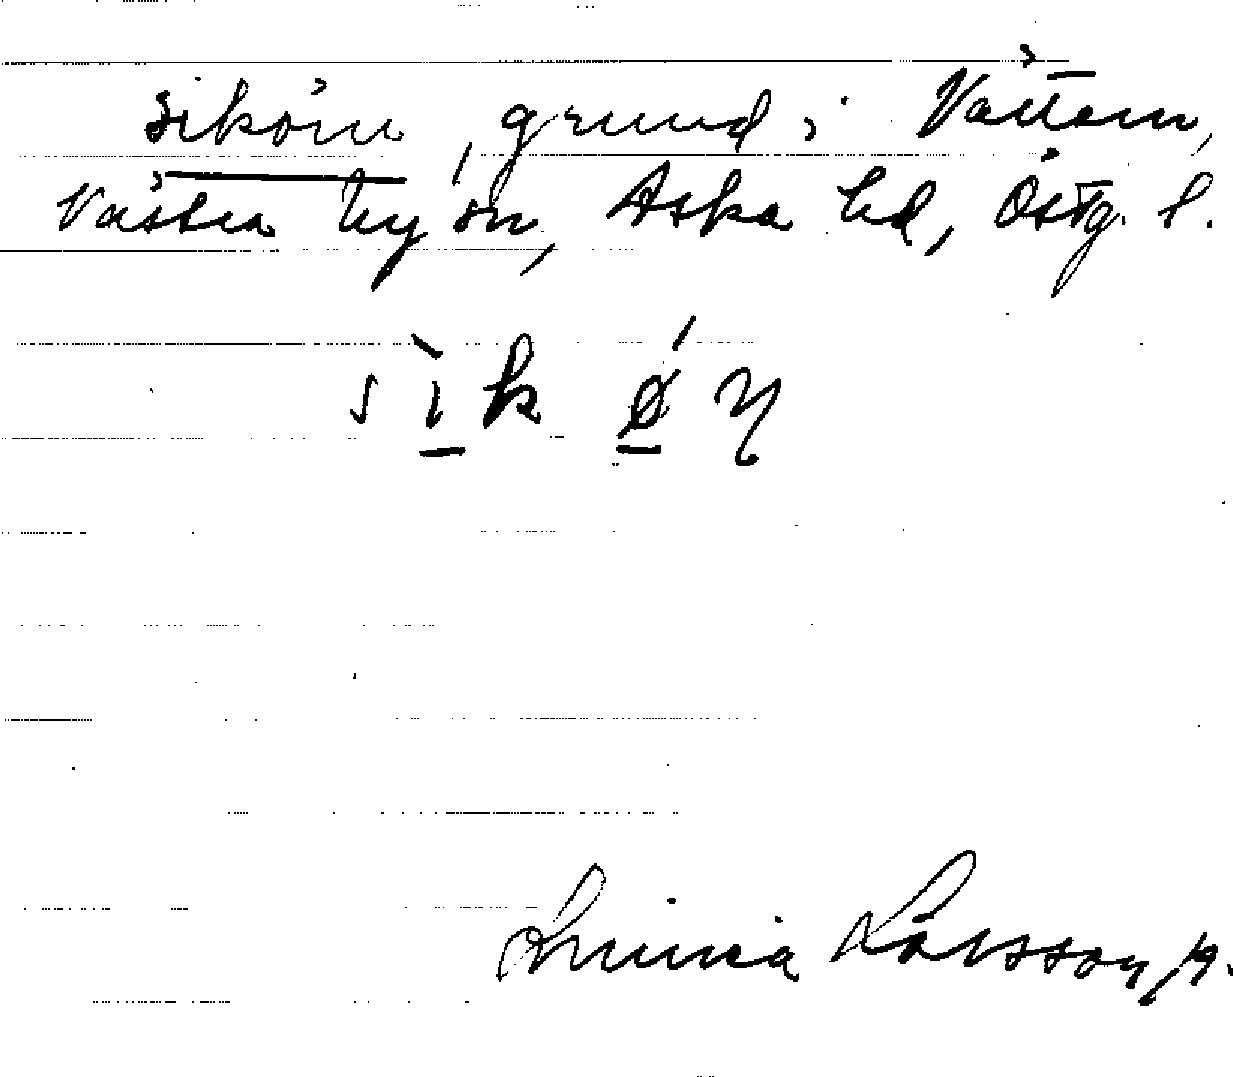 sikörn, grund i Vättern,
Västra Ny sn, Aska hd, Östg. l.
s ì k ǿ ɳ
Linnea Larsson